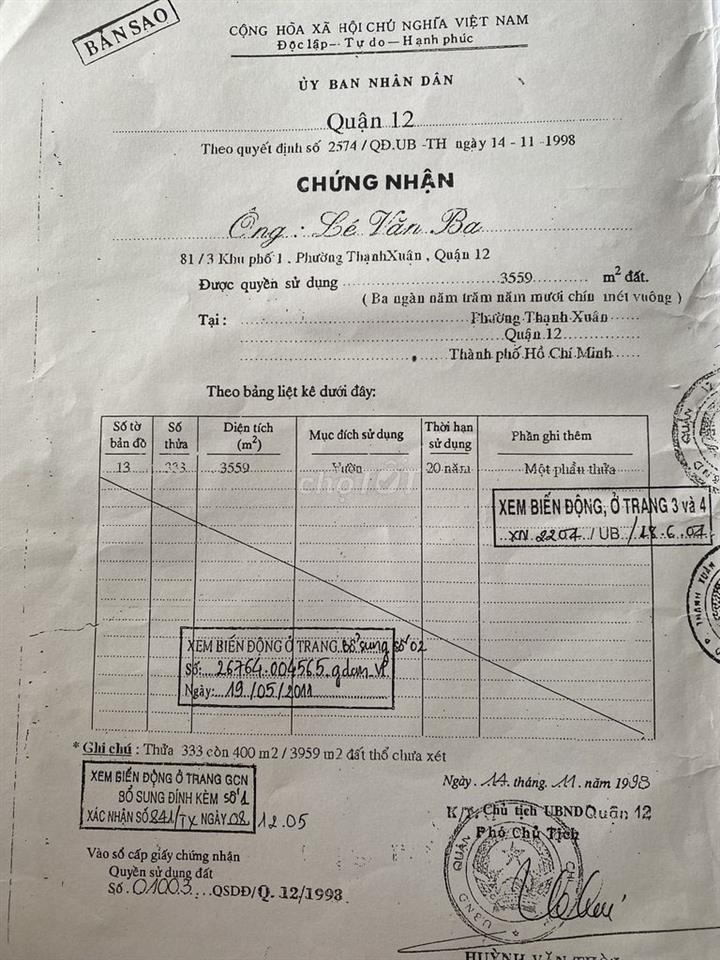 BẢN SAO
CỘNG HÒA XÃ HỘI CHỦ NGHĨA VIỆT NAM
Độc lập - Tự do - Hạnh phúc
ỦY BAN NHÂN DÂN
Quận 12
Theo quyết định số 2574 / QĐ.UB -TH ngày 14 - 11 -1998
CHỨNG NHẬN
Ông : Lê Văn Ba
81 / 3 Khu phố 1 , Phường ThạnhXuân , Quận 12
Được quyền sử dụng 3559 m² đất.
( Ba ngàn năm trăm năm mươi chín mét vuông )
Tại : Phường Thạnh Xuân
Quận 12
Thành phố Hồ Chí Minh
Theo bảng liệt kê dưới đây:
Số tờ bản đồ Số thửa Diện tích (m²) Mục đích sử dụng Thời hạn sử dụng Phần ghi thêm
13 333 3559 Vườn 20 năm Một phần thửa
chợTỐT
XEM BIẾN ĐỘNG, Ở TRANG 3 và 4
XN 2204 / UB / 18.6.04
XEM BIẾN ĐỘNG Ở TRANG bổ sung số 02
Số: 26764.004565.gdcn-VP
Ngày: 19/05/2011
* Ghi chú : Thửa 333 còn 400 m2 / 3959 m2 đất thổ chưa xét
XEM BIẾN ĐỘNG Ở TRANG GCN
BỔ SUNG ĐÍNH KÈM số 1
XÁC NHẬN SỐ 841/TX NGÀY 08.12.05
Ngày 14 tháng 11 năm 1998
K/T Chủ tịch UBND Quận 12
Phó Chủ Tịch
Vào sổ cấp giấy chứng nhận
Quyền sử dụng đất
Số 01003 QSDĐ/Q.12/1998
HUỲNH VĂN